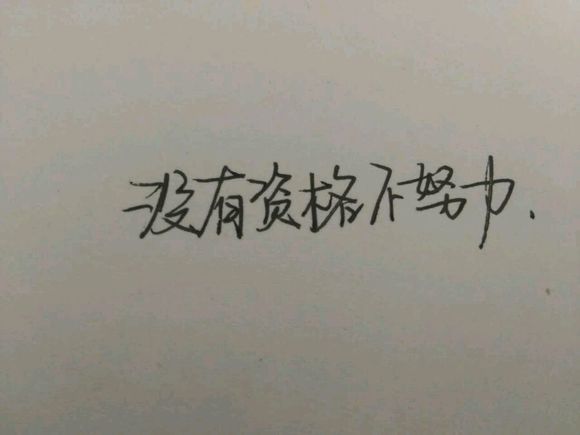 没有资格不努力.